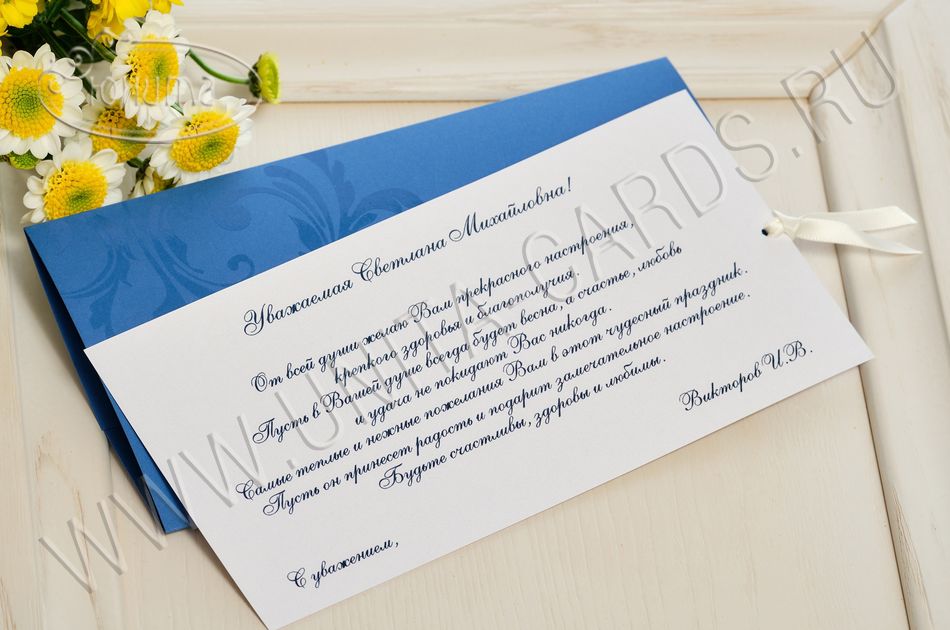 Уважаемая Светлана Михайловна!
От всей души желаю Вам прекрасного настроения,
крепкого здоровья и благополучия.
Пусть в Вашей душе всегда будет весна, а счастье, любовь
и удача не покидают Вас никогда.
Самые теплые и нежные пожелания Вам в этот чудесный праздник.
Пусть он принесет радость и подарит замечательное настроение.
Будьте счастливы, здоровы и любимы.
С уважением,
Викторов И.В.
WWW.UNITA-CARDS.RU